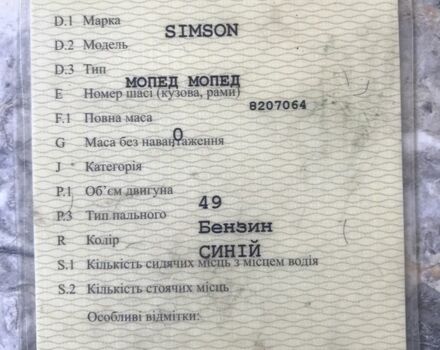 D.1 Марка SIMSON
D.2 Модель
D.3 Тип
МОПЕД МОПЕД
E Номер шасі (кузова, рами)
8207064
F.1 Повна маса
G Маса без навантаження 0
J Категорія
P.1 Об'єм двигуна 49
P.3 Тип пального Бензин
R Колір СИНІЙ
S.1 Кількість сидячих місць з місцем водія
S.2 Кількість стоячих місць
Особливі відмітки: